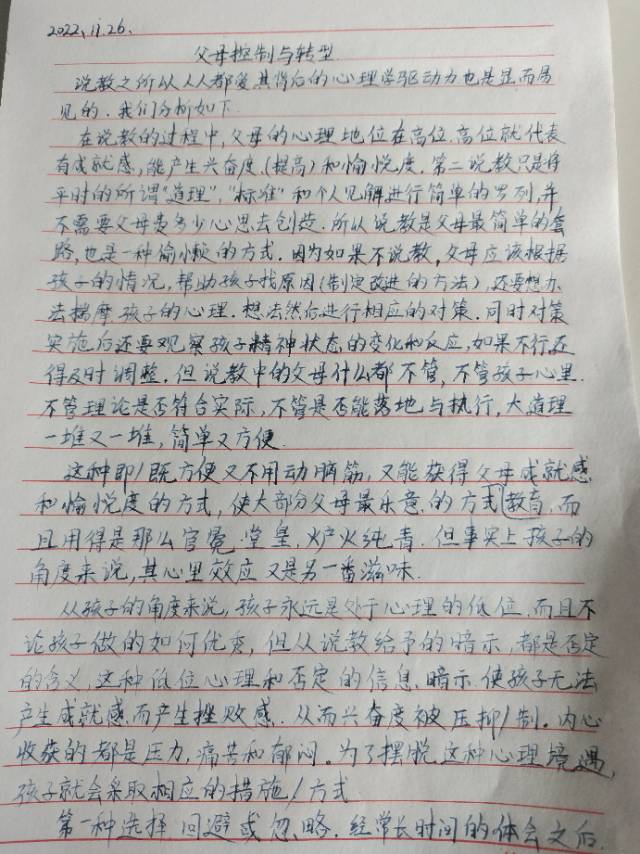 2022.11.26.
父母控制与转型
说教之所以人人都爱其背后的心理学驱动力也是显而易
见的.我们分析如下
在说教的过程中,父母的心理地位在高位.高位就代表
有成就感,能产生兴奋度(提高)和愉悦度.第二说教只是将
平时的所谓"道理","标准"和个人见解进行简单的罗列,并
不需要父母费多少心思去创造.所以说教是父母最简单的套
路,也是一种偷懒的方式.因为如果不说教,父母应该根据
孩子的情况,帮助孩子找原因(制定改进的方法),还要想办
法揣摩孩子的心理.想法然后进行相应的对策.同时对策
实施后还要观察孩子精神状态的变化和反应,如果不行还
得及时调整.但说教中的父母什么都不管,不管孩子心里.
不管理论是否符合实际,不管是否能落地与执行,大道理
一堆又一堆,简单又方便.
这种即/既方便又不用动脑筋,又能获得父母成就感
和愉悦度的方式,使大部分父母最乐意的方式教育,而
且用得是那么冠冕堂皇,炉火纯青.但事实上孩子的
角度来说,其心里效应又是另一番滋味.
从孩子的角度来说,孩子永远是处于心理的低位.而且不
论孩子做的如何优秀,但从说教给予的暗示,都是否定
的含义,这种低位心理和否定的信息,暗示,使孩子无法
产生成就感而产生挫败感.从而兴奋度被压抑/制.内心
收获的都是压力,痛苦和郁闷.为了摆脱这种心理境遇,
孩子就会采取相应的措施/方式
第一种选择.回避或忽略.经常长时间的体会之后